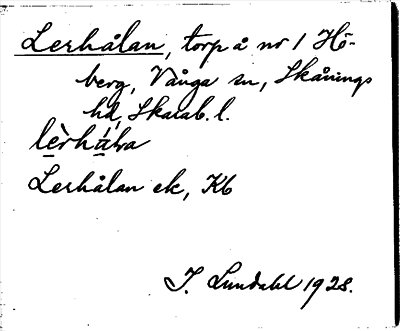 Lerhålan, torp å nr 1 Hö-
berg, Vånga sn, Skånings
hd, Skarab. l.
lèrháլa
Lerhålan ek, Kb
I. Lundahl 1928.